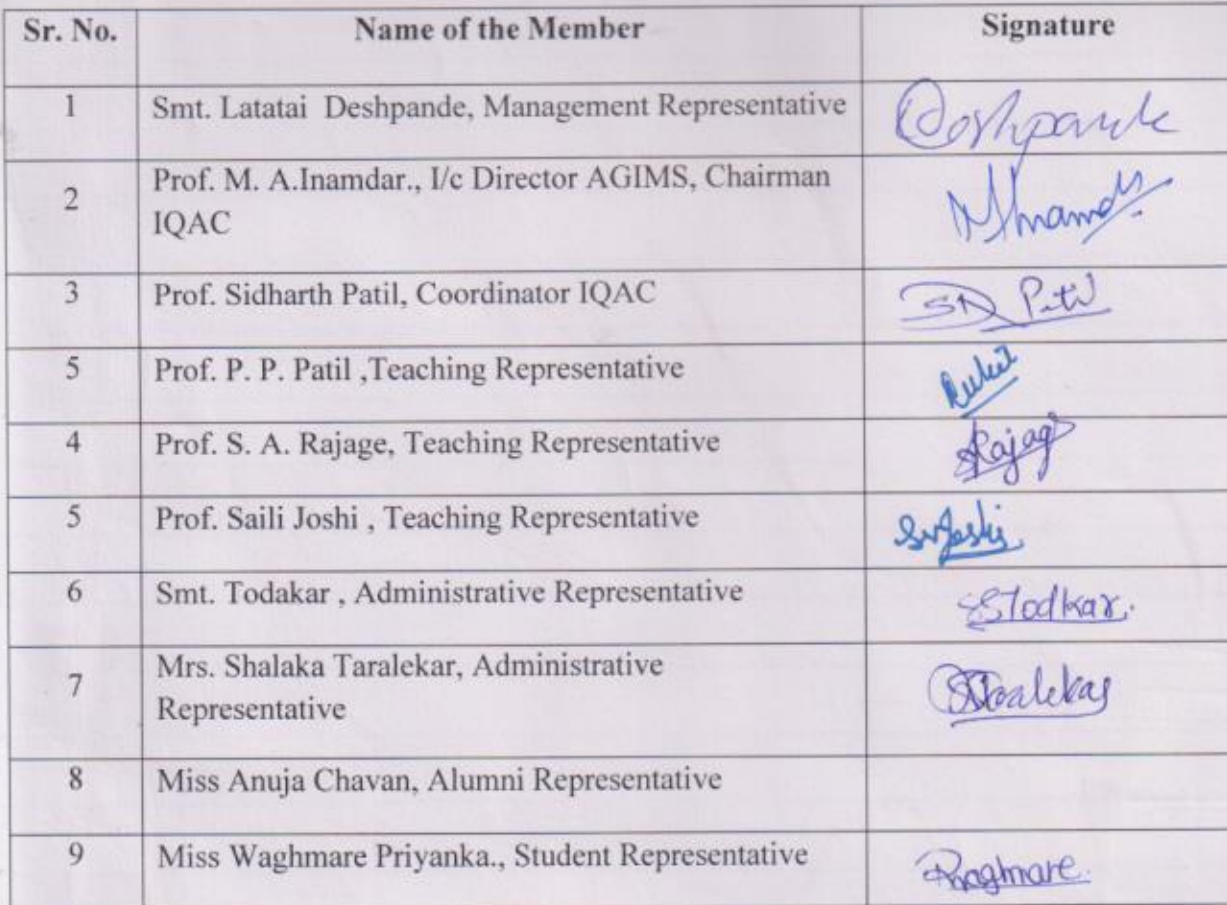 Sr. No. Name of the Member Signature
1 Smt. Latatai Deshpande, Management Representative Deshpande
2 Prof. M. A.Inamdar., I/c Director AGIMS, Chairman
IQAC
3 Prof. Sidharth Patil, Coordinator IQAC SN Patil
5 Prof. P. P. Patil ,Teaching Representative
4 Prof. S. A. Rajage, Teaching Representative Rajage
5 Prof. Saili Joshi , Teaching Representative
6 Smt. Todakar , Administrative Representative STodkar.
7 Mrs. Shalaka Taralekar, Administrative
Representative
8 Miss Anuja Chavan, Alumni Representative
9 Miss Waghmare Priyanka., Student Representative